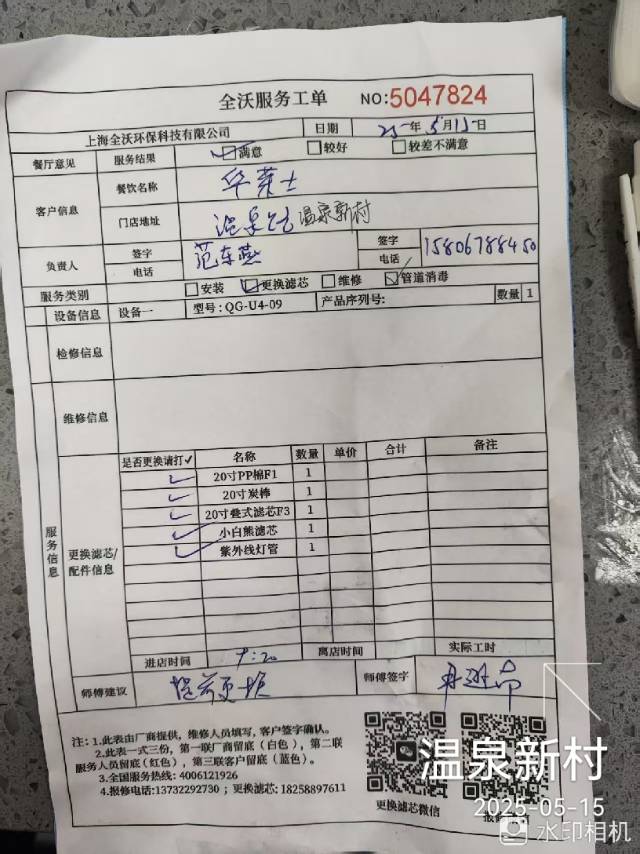 全沃服务工单 NO:5047824
上海全沃环保科技有限公司 日期 25年5月15日
餐厅意见 服务结果 满意 较好 较差不满意
客户信息 餐饮名称 华莱士
门店地址 温泉 温泉新村
负责人 签字 签字
电话 电话 15806788450
服务类别 安装 更换滤芯 维修 管道消毒
设备信息 设备一 型号:QG-U4-09 产品序列号: 数量 1
检修信息
维修信息
服务信息
更换滤芯/配件信息
是否更换请打✓ 名称 数量 单价 合计 备注
✓ 20寸PP棉F1 1
✓ 20寸炭棒 1
✓ 20寸叠式滤芯F3 1
✓ 小白熊滤芯 1
✓ 紫外线灯管 1
进店时间 9:20 离店时间 实际工时
师傅建议 师傅签字
注:1.此表由厂商提供,维修人员填写,客户签字确认。
2.此表一式三份,第一联厂商留底(白色),第二联
服务人员留底(红色),第三联客户留底(蓝色)。
3.全国服务热线:4006121926
4.报修电话:13732292730;更换滤芯:18258897611
更换滤芯微信
温泉新村
2025-05-15
水印相机